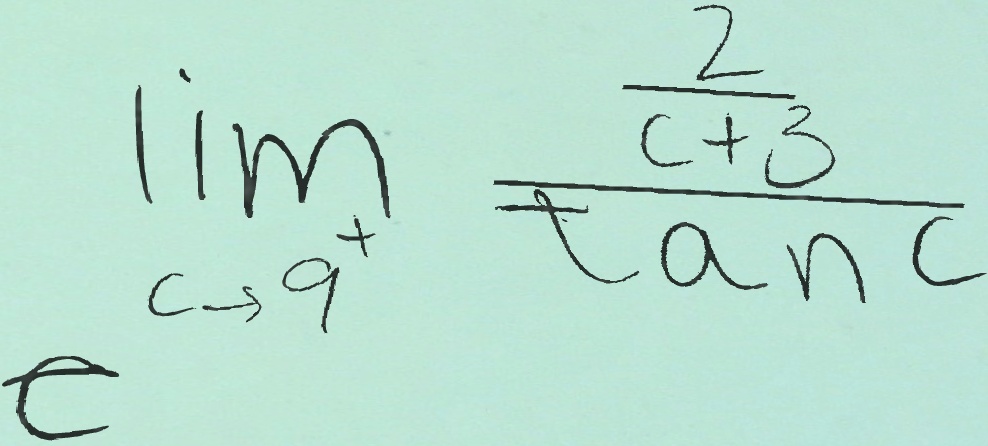 lim c→9⁺ \frac{\frac{2}{c+3}}{tan c}